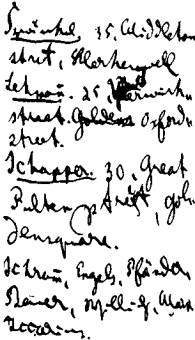 35, Middleton
street, Clerkenwell
Lehman. 25,
street. Golden Oxford-
street.
Schapper. 30, Great
Pulteney street, gol-
densquare.
Schram, Engels, Pfänder
Bauer, Willich,